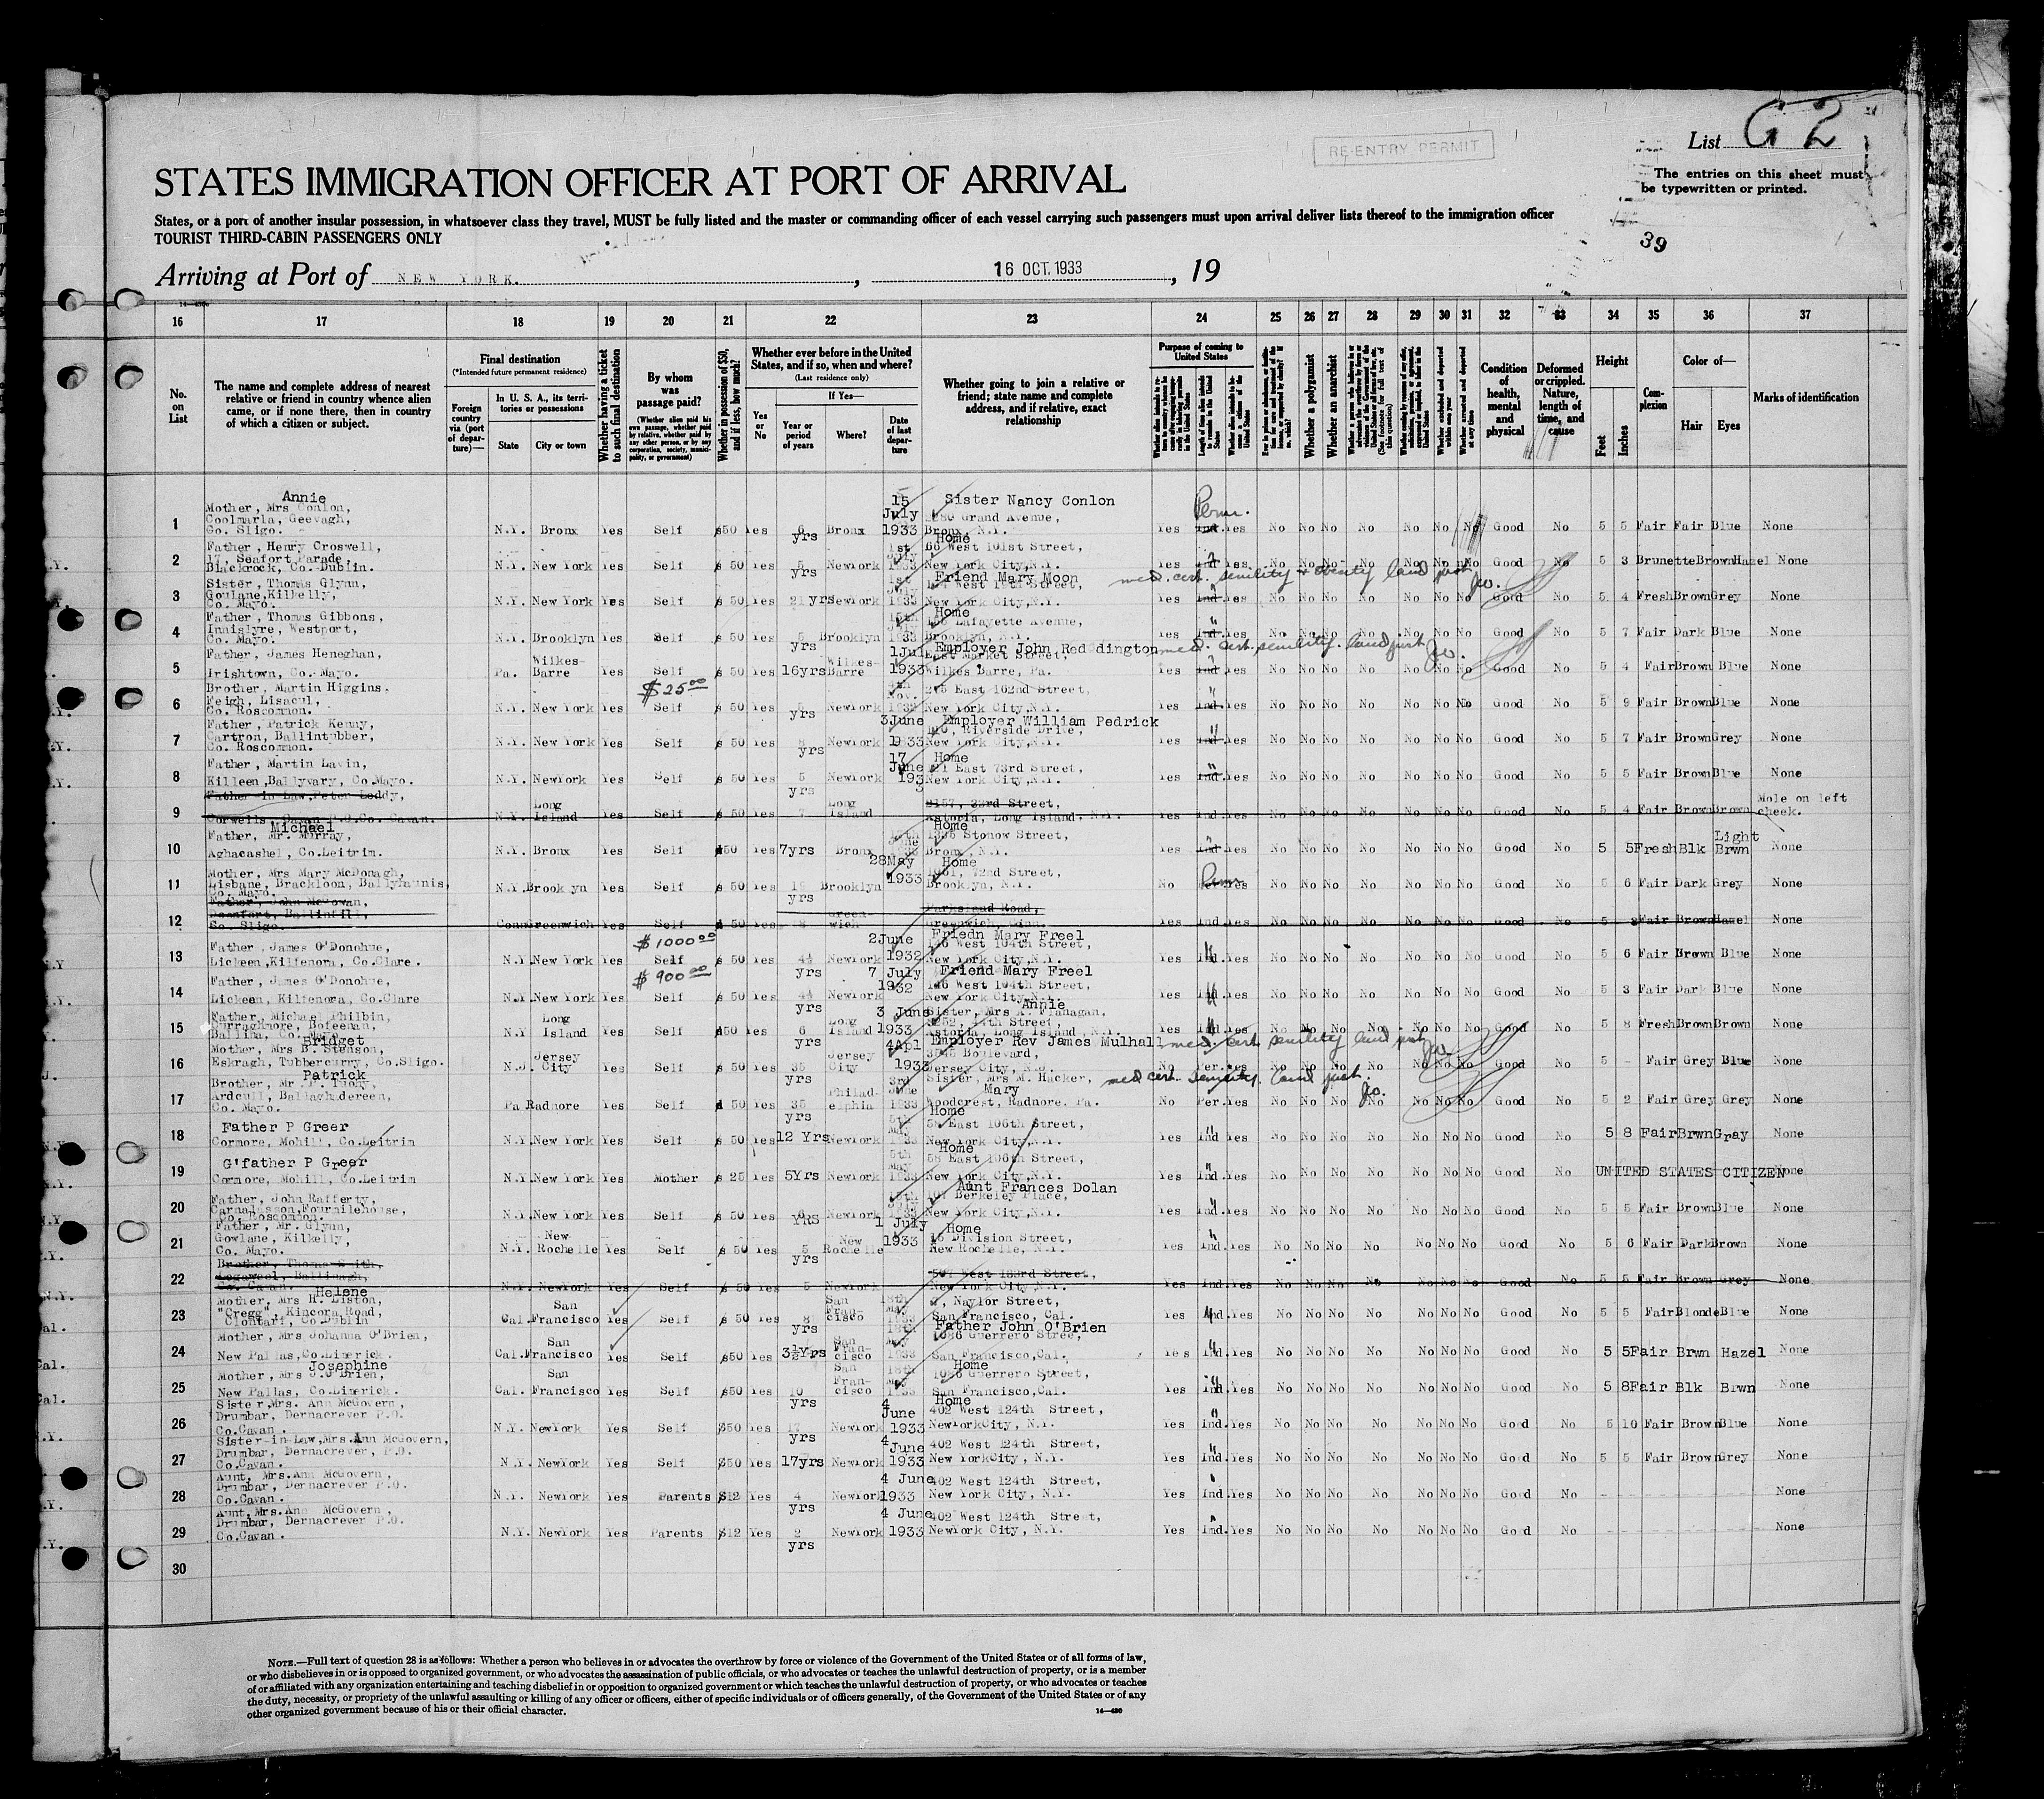 List G 2
RE-ENTRY PERMIT
The entries on this sheet must
be typewritten or printed.
STATES IMMIGRATION OFFICER AT PORT OF ARRIVAL
States, or a port of another insular possession, in whatsoever class they travel, MUST be fully listed and the master or commanding officer of each vessel carrying such passengers must upon arrival deliver lists thereof to the immigration officer
TOURIST THIRD-CABIN PASSENGERS ONLY
39
Arriving at Port of NEW YORK. , 16 OCT. 1933 , 19
16 17 18 19 20 21 22 23 24 25 26 27 28 29 30 31 32 33 34 35 36 37
No. on List
The name and complete address of nearest relative or friend in country whence alien came, or if none there, then in country of which a citizen or subject.
Final destination
(*Intended future permanent residence)
Foreign country via (port of departure)—
In U. S. A., its territories or possessions
State
City or town
Whether having a ticket to such final destination
By whom was passage paid?
(Whether alien paid his own passage, whether paid by relative, whether paid by any other person, or by any corporation, society, municipality, or government)
Whether in possession of $50, and if less, how much?
Whether ever before in the United States, and if so, when and where?
(Last residence only)
Yes or No
If Yes—
Year or period of years
Where?
Date of last departure
Whether going to join a relative or friend; state name and complete address, and if relative, exact relationship
Purpose of coming to United States
Whether a polygamist
Whether an anarchist
Condition of health, mental and physical
Deformed or crippled. Nature, length of time, and cause
Height
Feet
Inches
Complexion
Color of—
Hair
Eyes
Marks of identification
1 Mother, Mrs Annie Conlon, Coolmarla, Geevagh, Co. Sligo. N.Y. Bronx Yes Self $50 Yes 6 yrs Bronx 15 July 1933 Sister Nancy Conlon Grand Avenue, Bronx, N.Y. Yes Perm. Yes No No No No No No No Good No 5 5 Fair Fair Blue None
2 Father, Henry Croswell, 17, Seafort Parade, Blackrock, Co. Dublin. N.Y. New York Yes Self $ 50 Yes 5 yrs NewYork 1st July 1933 Home 66 West 101st Street, New York City, N.Y. Yes Ind. Yes No No No No No No No Good No 5 3 Brunette Brown Hazel None
med. cert. senility + obesity land just
3 Sister, Thomas Glynn, Goulane, Kilkelly, Co. Mayo. N.Y. New York Yes Self $ 50 Yes 21 yrs NewYork 1st July 1933 Friend Mary Moon New York City, N.Y. Yes Ind. Yes No No No No No No No Good No 5 4 Fresh Brown Grey None
4 Father, Thomas Gibbons, Innislyre, Westport, Co. Mayo. N.Y. Brooklyn Yes Self $ 50 Yes 5 yrs Brooklyn 15th 1933 Home Lafayette Avenue, Brooklyn, N.Y. Yes Ind. Yes No No No No No No No Good No 5 7 Fair Dark Blue None
med. cert. senility. land just
5 Father, James Heneghan, Irishtown, Co. Mayo. Pa. Wilkes-Barre Yes Self $ 50 Yes 16yrs Wilkes-Barre 1 Jul 1933 Employer John Reddington East Market Street, Wilkes Barre, Pa. Yes Ind Yes No No No No No No No Good No 5 4 Fair Brown Blue None
$ 25 00
6 Brother, Martin Higgins, Feigh, Lisacul, Co. Roscommon. N.Y. New York Yes Self $ 50 Yes 5 yrs NewYork Nov. 1932 East 162nd Street, New York City, N.Y. Yes Ind. Yes No No No No No No No Good No 5 9 Fair Brown Blue None
7 Father, Patrick Kenny, Cartron, Ballintubber, Co. Roscommon. N.Y. New York Yes Self $ 50 Yes 8 yrs NewYork 3 June 1933 Employer William Pedrick Riverside Drive, New York City, N.Y. Yes Ind. Yes No No No No No No No Good No 5 7 Fair Brown Grey None
8 Father, Martin Lavin, Killeen, Ballyvary, Co. Mayo. N.Y. NewYork Yes Self $ 50 Yes 5 yrs NewYork 17 June 1933 Home East 73rd Street, New York City, N.Y. Yes Ind. Yes No No No No No No No Good No 5 5 Fair Brown Blue None
9 Father-in-Law, Peter Leddy, Corwells, Cavan P.O. Co. Cavan. N.Y. Long Island Yes Self $ 50 Yes 7 Long Island 33rd Street, Astoria, Long Island, N.Y. Yes Ind Yes No No No No No No No Good No 5 4 Fair Brown Brown Mole on left cheek.
10 Father, Mr. Michael Murray, Aghacashel, Co. Leitrim. N.Y. Bronx Yes Self $50 Yes 7yrs Bronx June Home Stonow Street, Bronx, N.Y. Yes Ind Yes No No No No No No No Good No 5 5 Fresh Blk Light Brwn None
11 Mother, Mrs Mary McDonagh, Lisbane, Brackloon, Ballyhaunis, Co. Mayo. N.Y. Brooklyn Yes Self $ 50 Yes yrs Brooklyn 28 May 1933 Home 72nd Street, Brooklyn, N.Y. No Perm Yes No No No No No No No Good No 5 6 Fair Dark Grey None
12 Father, John McGowan, Co. Sligo. Conn Greenwich Yes Self $ 50 Yes 8 Greenwich Parksland Road, Greenwich, Conn. Yes Ind. Yes No No No No No No No Good No 5 Fair Brown Hazel None
$ 1000 00
13 Father, James O'Donohue, Lickeen, Kilfenora, Co. Clare. N.Y. New York Yes Self $ 50 Yes 4½ yrs NewYork 2 June 1932 Friedn Mary Freel 146 West 104th Street, New York City, N.Y. Yes Ind. Yes No No No No No No No Good No 5 6 Fair Brown Blue None
$ 900 00
14 Father, James O'Donohue, Lickeen, Kilfenora, Co. Clare N.Y. New York Yes Self $ 50 Yes 4½ yrs NewYork 7 July 1932 Friend Mary Freel 146 West 104th Street, New York City, N.Y. Yes Ind. Yes No No No No No No No Good No 5 3 Fair Dark Blue None
15 Father, Michael Philbin, Curraghmore, Bofeenan, Ballina, Co. Mayo. N.Y Long Island Yes Self $50 Yes 6 yrs Long Island 3 June 1933 Sister, Mrs A. Annie Flanagan, Street, Astoria, Long Island, N.Y. Yes Ind. Yes No No No No No No No Good No 5 8 Fresh Brown Brown None
med. cert senility land just
16 Mother, Mrs B. Bridget Stenson, Eskragh, Tubbercurry, Co. Sligo. N.J. Jersey City Yes Self $ 50 Yes 35 yrs Jersey City 4 Apl 1933 Employer Rev James Mulhall Boulevard, Jersey City, N.J. No Per. Yes No No No No No No No Good No 5 - Fair Grey Blue None
med cert. senility. land just.
17 Brother, Mr Patrick Tuohy, Ardcull, Ballaghadereen, Co. Mayo. Pa Radnore Yes Self $ 50 Yes 35 yrs Philadelphia 3rd June 1933 Sister, Mrs M. Hacker, Mary Woodcrest, Radnore, Pa. No Per. Yes No No No No No No No Good No 5 2 Fair Grey Grey None
18 Father P Greer Cormore, Mohill, Co. Leitrim N.Y. New York Yes Self $ 50 Yes 12 Yrs NewYork 5th May 1933 Home 58 East 106th Street, New York City, N.Y. Yes Ind Yes No No No No No No No Good No 5 8 Fair Brwn Gray None
19 G'father P Greer Cormore, Mohill, Co. Leitrim N.Y. New York Yes Mother $ 25 Yes 5Yrs NewYork 5th May 1933 Home 58 East 106th Street, New York City, N.Y. Yes Ind. Yes No No No No No No No Good No UNITED STATES CITIZEN None
20 Father, John Rafferty, Carnalasson, Fourmilehouse, Co. Roscommon. N.Y. New York Yes Self $ 50 Yes 6 Yrs NewYork 1933 Aunt Frances Dolan Berkeley Place, New York City, N.Y. Yes Ind. Yes No No No No No No No Good No 5 5 Fair Brown Blue None
21 Father, Mr. Glynn, Gowlane, Kilkelly, Co. Mayo. N.Y. New Rochelle Yes Self $ 50 Yes 5 yrs New Rochelle 1 July 1933 Home Division Street, New Rochelle, N.Y. Yes Ind. Yes No No No No No No No Good No 5 6 Fair Dark Brown None
22 Brother, Thomas Smith, Co. Cavan. N.Y. NewYork Yes Self $ 50 Yes 5 NewYork 507 West 183rd Street, New York City, N.Y. Yes Ind. Yes No No No No No No No Good No 5 5 Fair Brown Grey None
23 Mother, Mrs H. Helene Liston, "Cregg", Kincora Road, Clontarf, Co. Dublin Cal. San Francisco Yes Self $ 50 Yes 8 yrs San Francisco 18th May 1933 Naylor Street, San Francisco, Cal. Yes Ind. Yes No No No No No No No Good No 5 5 Fair Blonde Blue None
24 Mother, Mrs Johanna O'Brien, New Pallas, Co. Limerick. Cal. San Francisco Yes Self $50 Yes 3½Yrs San Francisco 18th May 1933 Father John O'Brien 1086 Guerrero Street, San Francisco, Cal. Yes Ind. Yes No No No No No No No Good No 5 5 Fair Brwn Hazel None
25 Mother, Mrs J. Josephine O'Brien, New Pallas, Co. Limerick. Cal. San Francisco Yes Self $50 Yes 10 yrs San Francisco 18th May 1933 Home 1086 Guerrero Street, San Francisco, Cal. Yes Ind. Yes No No No No No No No Good No 5 8 Fair Blk Brwn None
26 Sister, Mrs. Ann McGovern, Drumbar, Dernacrever P.O. Co. Cavan. N.Y. NewYork Yes Self $50 Yes 17 yrs NewYork 4 June 1933 Home 402 West 124th Street, NewYork City, N.Y. Yes Ind. Yes No No No No No No No Good No 5 10 Fair Brown Blue None
27 Sister-in-Law, Mrs. Ann McGovern, Drumbar, Dernacrever, P.O. Co. Cavan. N.Y. NewYork Yes Self $50 Yes 17yrs NewYork 4 June 1933 402 West 124th Street, New York City, N.Y. Yes Ind. Yes No No No No No No No Good No 5 5 Fair Brown Grey None
28 Aunt, Mrs. Ann McGovern, Drumbar, Dernacrever P.O. Co. Cavan. N.Y. NewYork Yes Parents $12 Yes 4 yrs NewYork 4 June 1933 402 West 124th Street, New York City, N.Y. Yes Ind. Yes No No No No No No No Good No None
29 Aunt, Mrs. Ann McGovern, Drumbar, Dernacrever P.O. Co. Cavan. N.Y. NewYork Yes Parents $12 Yes 2 yrs NewYork 4 June 1933 402 West 124th Street, NewYork City, N.Y. Yes Ind. Yes No No No No No No No Good No None
30
NOTE.—Full text of question 28 is as follows: Whether a person who believes in or advocates the overthrow by force or violence of the Government of the United States or of all forms of law,
or who disbelieves in or is opposed to organized government, or who advocates the assassination of public officials, or who advocates or teaches the unlawful destruction of property, or is a member
of or affiliated with any organization entertaining and teaching disbelief in or opposition to organized government or which teaches the unlawful destruction of property, or who advocates or teaches
the duty, necessity, or propriety of the unlawful assaulting or killing of any officer or officers, either of specific individuals or of officers generally, of the Government of the United States or of any
other organized government because of his or their official character.
14—430